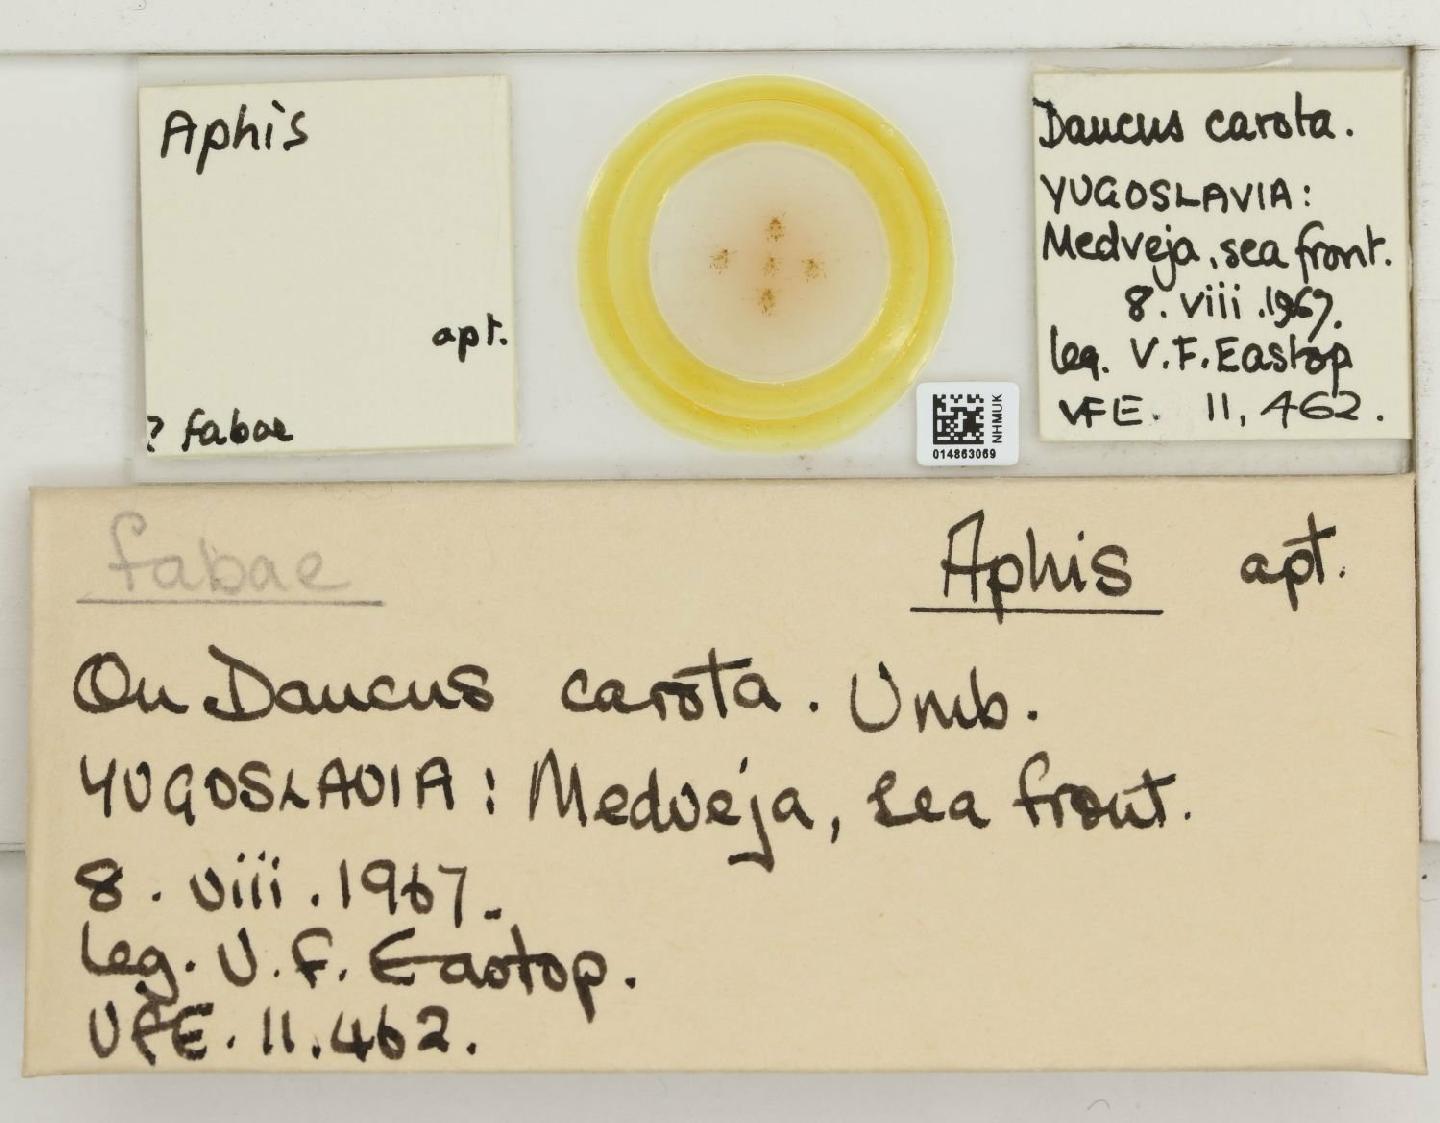 Aphis
apt.
? fabae
NHMUK
014863069
Daucus carota.
YUGOSLAVIA:
Medveja, sea front.
8. viii .1967.
leg. V. F. Eastop
VFE. 11, 462.
fabae
Aphis apt.
On Daucus carota. Umb.
YUGOSLAVIA: Medveja, sea front.
8. viii .1967.
Leg. V. F. Eastop.
VFE. 11.462.